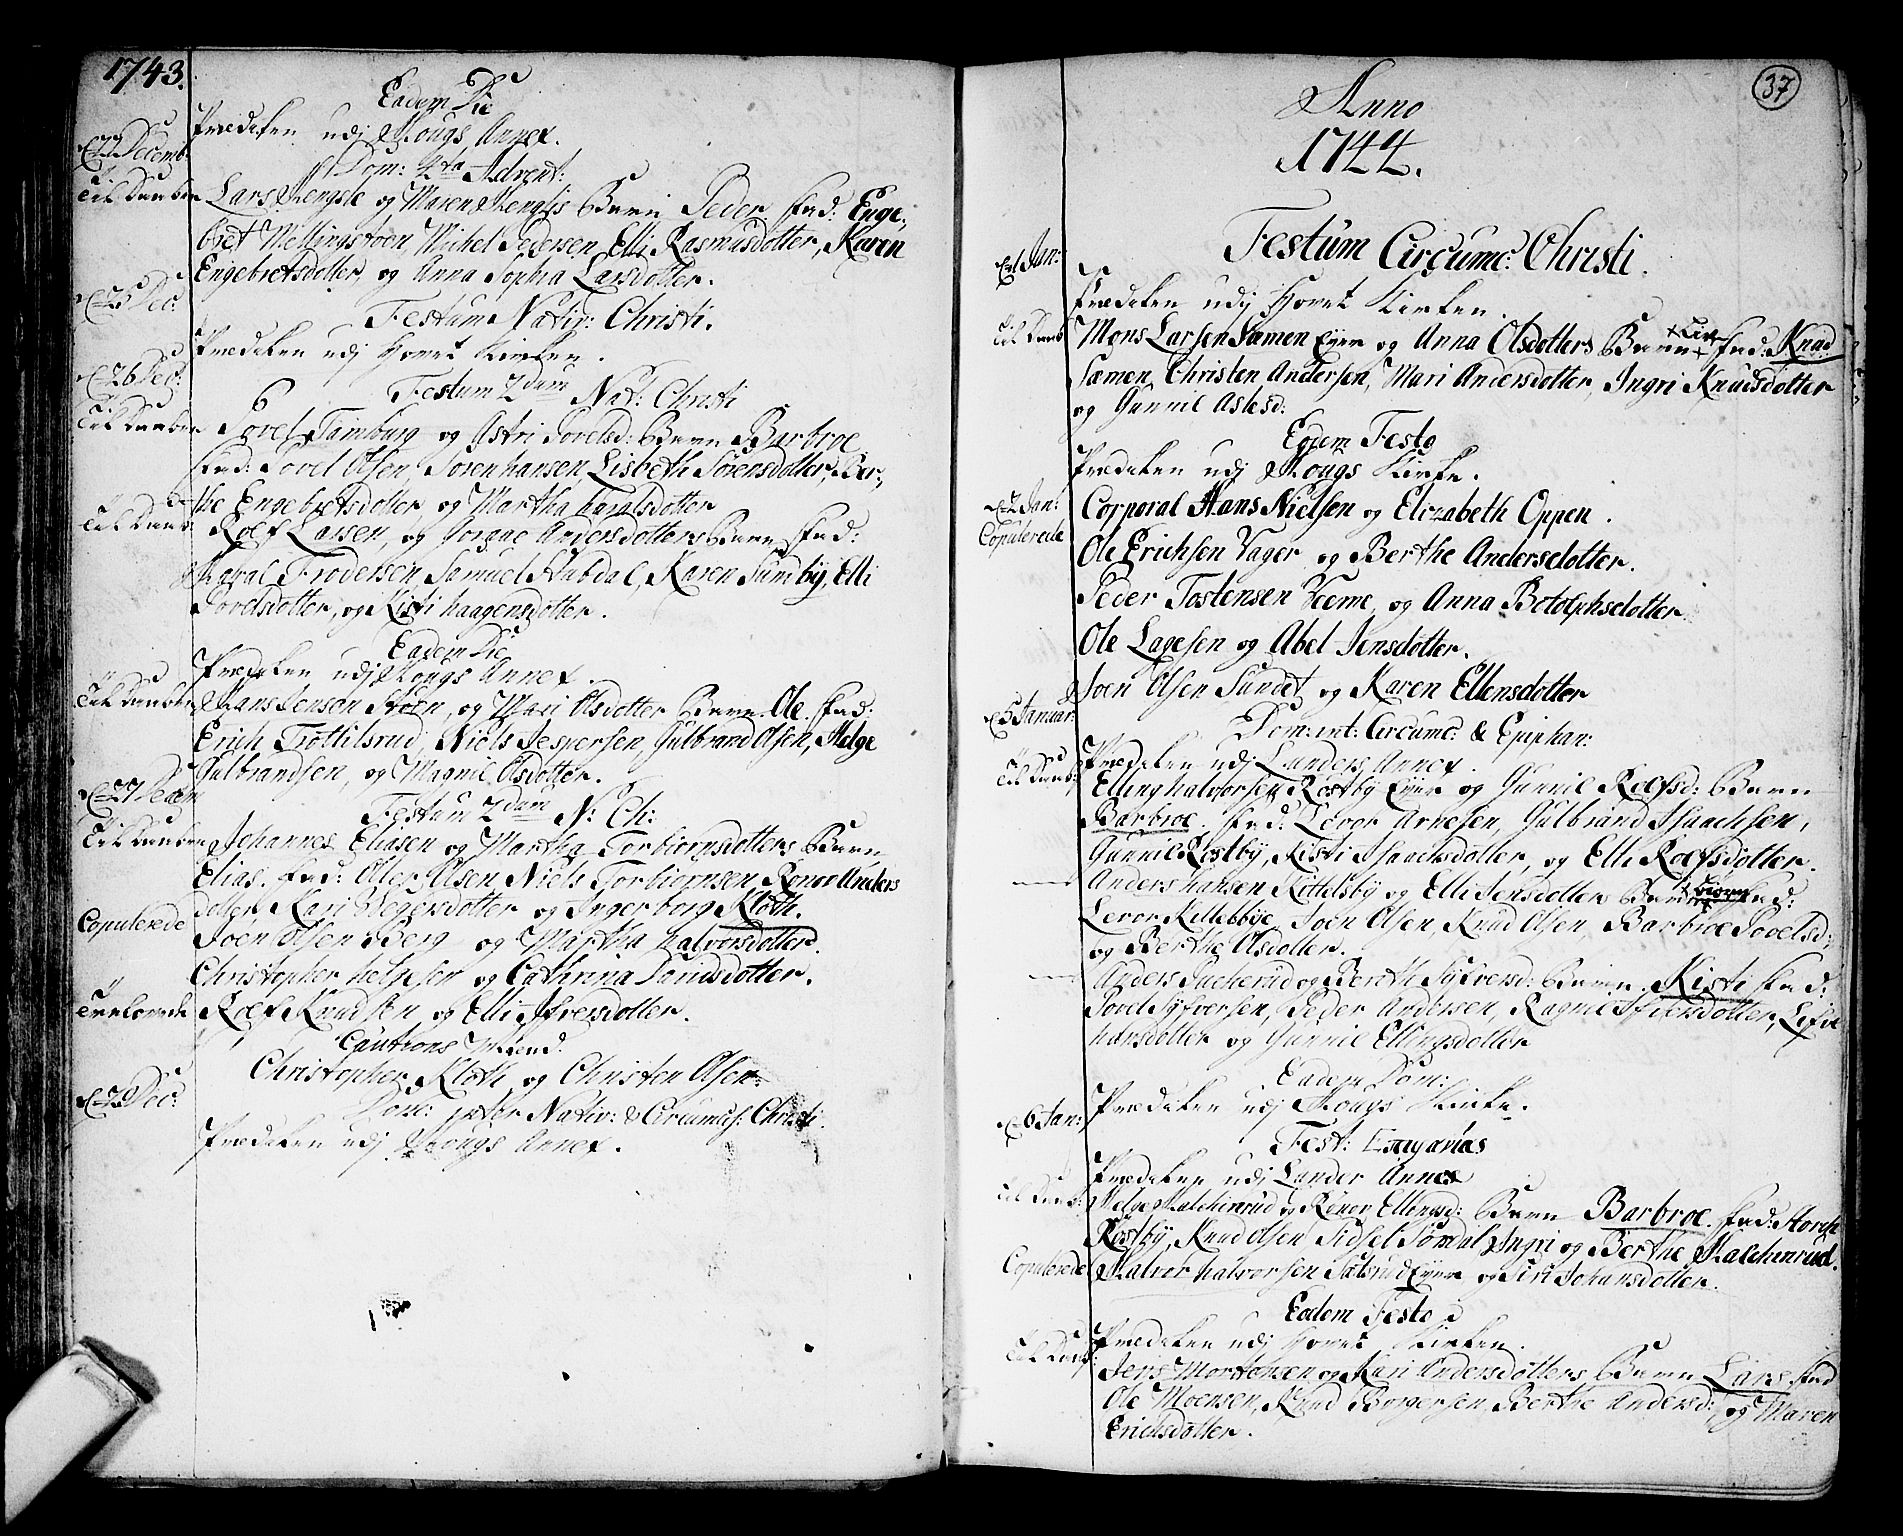 1743.
Eadem Die
Prædiken udj Hougs Annex.
22 Decemb:
Dom: 4ta Advent:
Til Daaben
Lars Hengsle og Maren Henglis Barn Peder. fad: Enge-
bret Mellingstoen, Michel Pedersen, Elli Rasmusdotter, Karin
Engebretsdotter, og Anna Sophia Larsdotter.
25 Dec:
Festum Nativ: Christi.
Prædiken udj Hovet Kirken.
26 Dec:
Festum 2dum Nat: Christi
Til Daaben
Povel Tamburg og Astri Povelsd: Barn Barbroe
fad: Povel Olsen, Soren hansen, Lisbeth Sørensdotter, Ber-
the Engebretsdotter, og Martha haralsdotter
Til Daab:
Rolf Larsen, og Gorane Andersdotters Barn fad:
Frodersen Samuel Hubdal, Karen Sundby, Elli
Povelsdotter, og Kisti haagensdotter.
Eadem Die
Prædiken udj Hougs Annex.
Til Daaben
Hans Jensen Hoen, og Mari Olsdotter Barn. Ole. fad:
Erich Trøttilsrud, Niels Jespersen, Gulbrand Olsen, Helge
Gulbrandsen, og Magnil Olsdotter.
27 Decem
Festum 2dum N: Ch:
Til Daaben
Johannes Eliasen og Martha Torbiornsdotters Barn
Elias. fad: Oler Olsen Niels Torbiornsen, Ronov Anders
dotter, Kari Vegersdotter og Ingerborg Kloth.
Copulerede
Joen Olsen Berg og Martha halvorsdotter.
Christopher helgesen og Cathrina Poulsdotter.
Trolovede
Rolf Knudsen og Elli Ifversdotter.
Cautions Mænd.
Christopher Kloth og Christen Olsen.
29 Dec:
Dom: inter Nativ: & Circumcis: Christi.
Prædiken udj Hougs Annex.
37
Anno
1744.
Festum Circumc: Christi.
1 Jan:
Prædiken udj Hovet Kirken.
Til Daab
Mons Larsen Sæmen Eyer og Anna Olsdotters Barn Liv fad: Knud
Sæmen, Christen Andersen, Mari Andersdotter, Ingri Knudsdotter
og Gunnil Aslesd:
Eodem Festo
Prædiken udj Hougs Kirke.
2 Jan:
Copulerede
Corporal Hans Nielsen og Elizabeth Oppen.
Ole Erichsen Vager og Berthe Andersdotter.
Peder Tostensen Veeme, og Anna Botolphsdotter.
Ole Lagesen og Abel Jensdotter.
Joen Olsen Sundet og Karen Ellensdotter
5 Januar:
Dom: int: Circumc: & Epiphan:
Prædiken udj Lunders Annex.
Til Daab:
Elling halvorsen Rostby Eyer og Gunnil Rolfsd: Barn
Barbroe. fad: Levor Arnesen, Gulbrand Isaachsen,
Gunnil Rostby, Kisti Isaachsdotter, og Elli Rolfsdotter.
Anders hansen Kittelsby og Elli Jensdotters Barn Biørn fad:
Levor Killebbye, Joen Olsen, Knud Olsen, Barbroe Povelsd:
og Berthe Olsdotter.
Anders Juckerud og Berith Syfversd: Barn. Kisti fad:
Povel Syfversen, Peder Andersen, Ragnil Ifversdotter,
hansdotter og Gunnil Ellingsdotter
Eadem Dom:
Prædiken udj Hougs Kirke.
6 Jan:
Fest: Επιφανίας
Prædiken udj Lunder Annex
Til Daab:
Helge Halchinrud og Rønov Ellingsd: Barn Barbroe. fad:
Rostby, Knud Olsen Sidsel Sørdal, Ingri og Berthe Halchinrud.
Copulerede
Halvor halvorsen Eyer og Siri Johansdotter.
Eodem Festo
Prædiken udj Hovet Kirken.
Til Daab:
Jens Mortensen og Kari Andersdotters Barn Lars fad
Ole Moensen, Knud Borgersen, Berthe Andersd: og Maren
Erichsdotter.